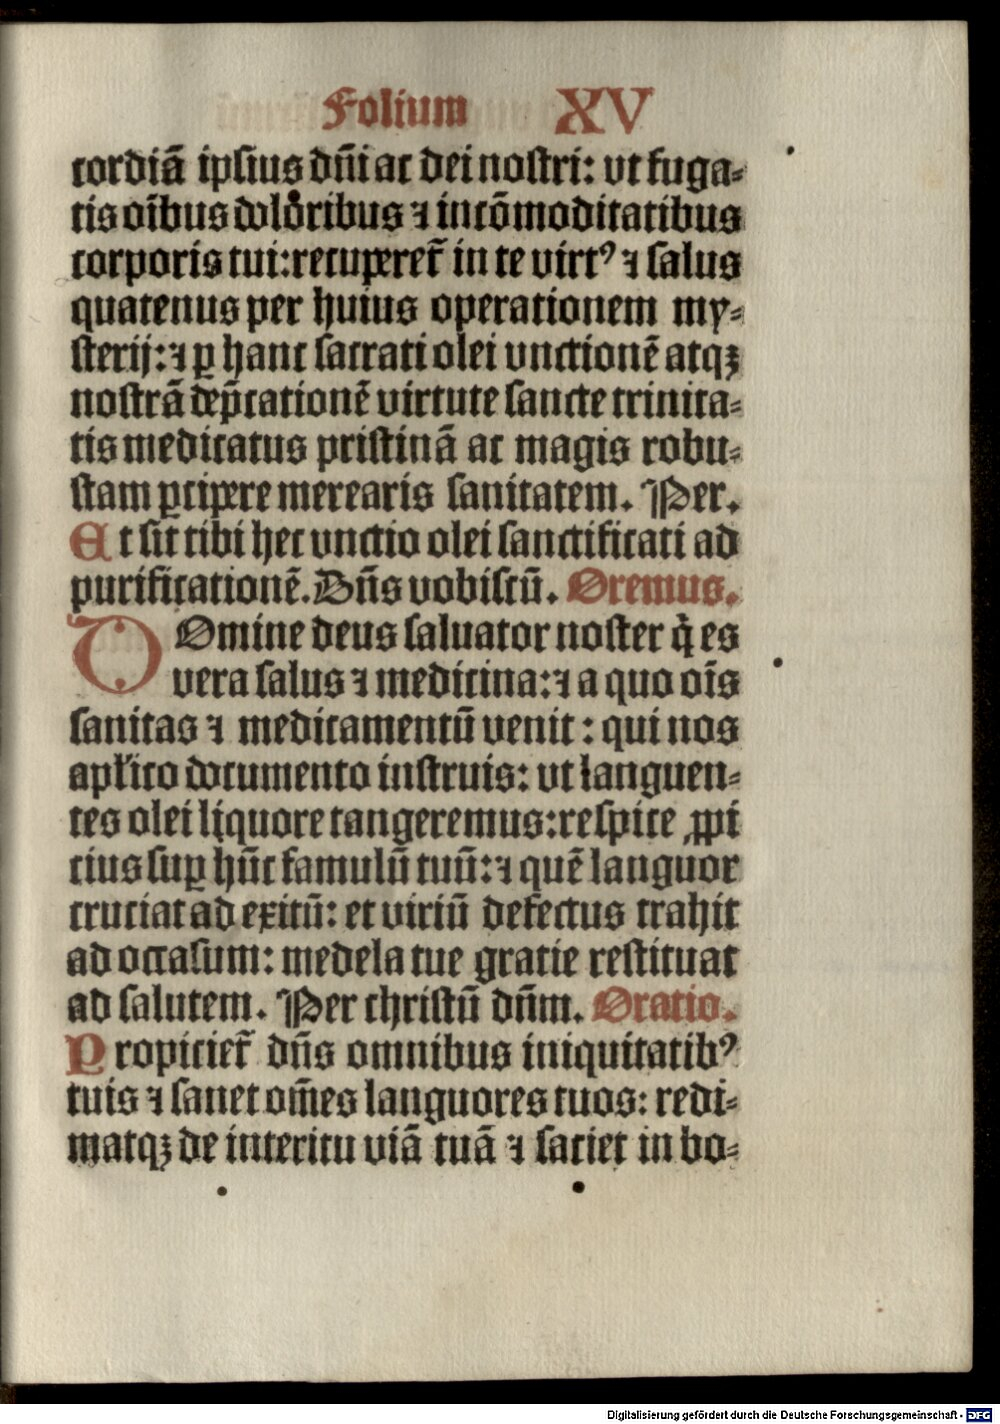 Folium XV
cordiã ipsius dñi ac dei nostri: vt fuga⸗
tis oĩbus doloribus ⁊ incõmoditatibus
corporis tui: recuperet̃ in te virtꝰ ⁊ salus
quatenus per huius operationem my⸗
sterij: ⁊ ꝑ hanc sacrati olei vnctionẽ atqꝫ
nostrã dep̃cationẽ virtute sancte trinita⸗
tis medicatus pristinã ac magis robu⸗
stam ꝑcipere merearis sanitatem. Per.
Et sit tibi hec vnctio olei sanctificati ad
purificationẽ. Dñs vobiscũ. Oremus.
DOmine deus saluator noster q̃ es
vera salus ⁊ medicina: ⁊ a quo oĩs
sanitas ⁊ medicamentũ venit: qui nos
apl'ico documento instruis: vt languen⸗
tes olei liquore tangeremus: respice ꝓpi
cius suꝑ hũc famulũ tuũ: ⁊ quẽ languor
cruciat ad exitũ: et viriũ defectus trahit
ad occasum: medela tue gratie restituat
ad salutem. Per christũ dñm. Oratio.
Propiciet̃ dñs omnibus iniquitatibꝰ
tuis ⁊ sanet om̃es languores tuos: redi⸗
matqꝫ de interitu viã tuã ⁊ saciet in bo⸗
Digitalisierung gefördert durch die Deutsche Forschungsgemeinschaft - DFG